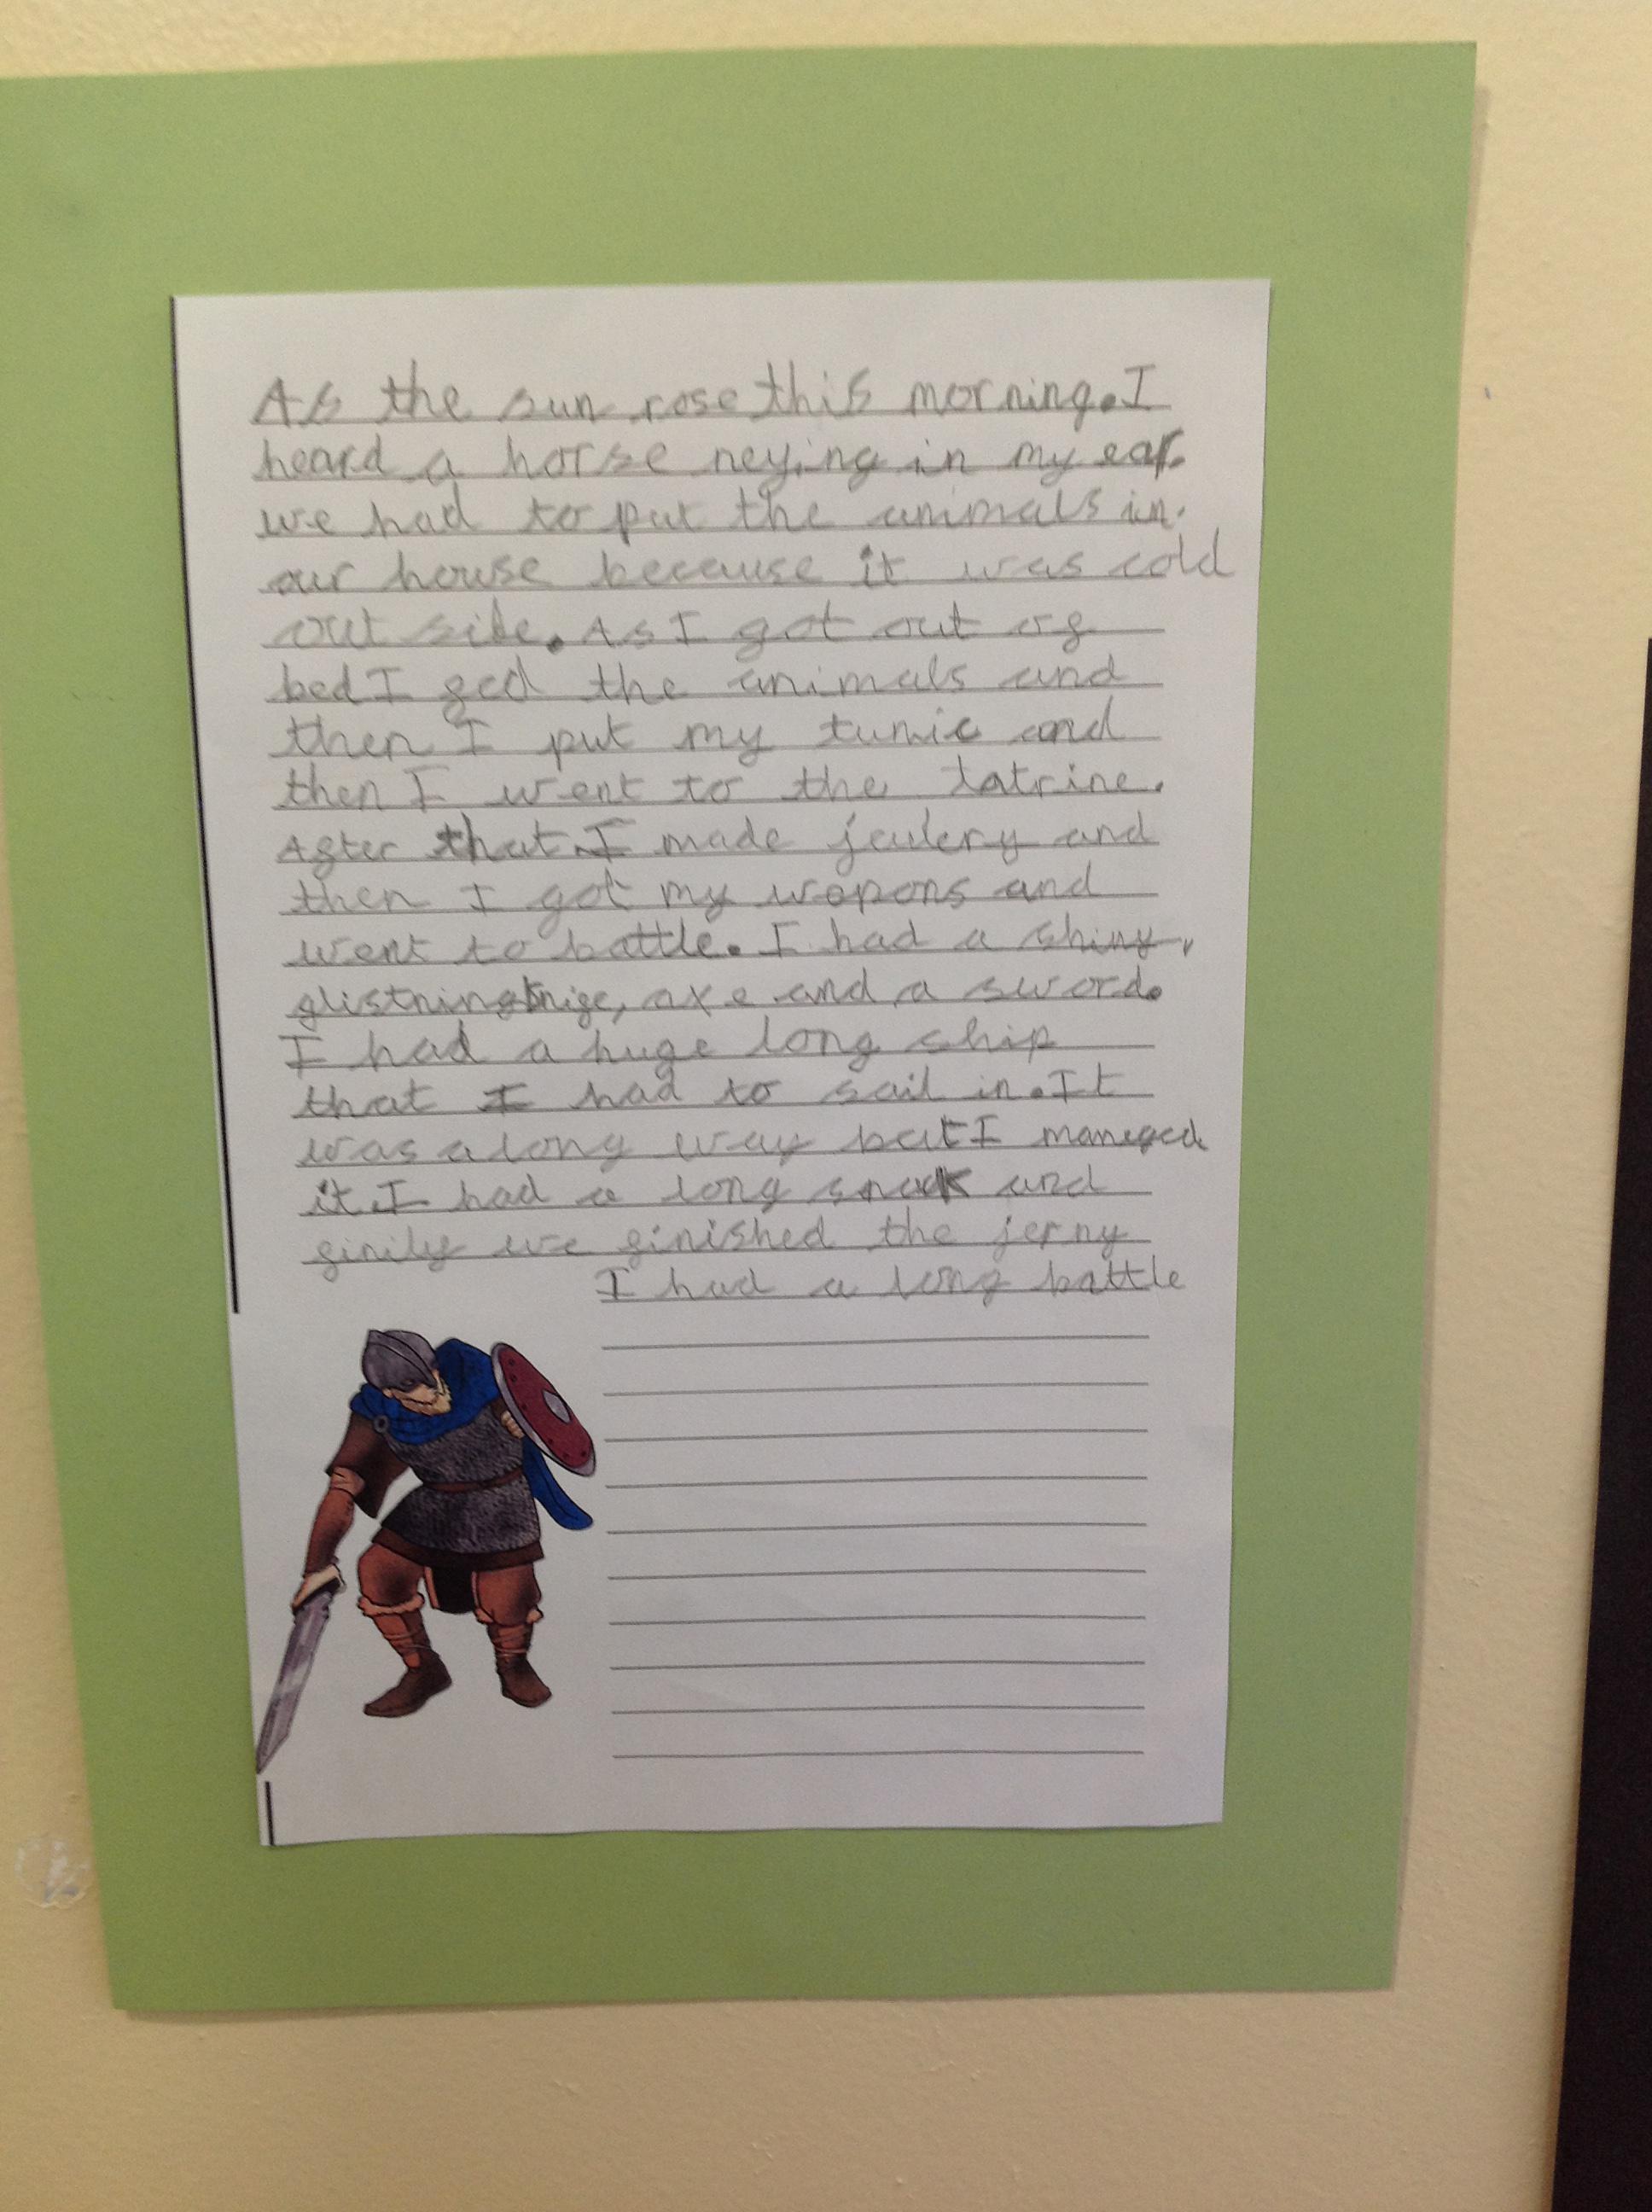 As the sun rose this morning. I
heard a horse neying in my ear.
we had to put the animals in
our house because it was cold
out side. As I got out of
bed I fed the animals and
then I put my tunic and
then I went to the latrine.
After that I made jewlery and
then I got my wepons and
went to battle. I had a shiny,
glistning knife, axe and a sword.
I had a huge long ship
that I had to sail in. It
was a long way but I maneged
it. I had a long snack and
finily we finished the jerny
I had a long battle